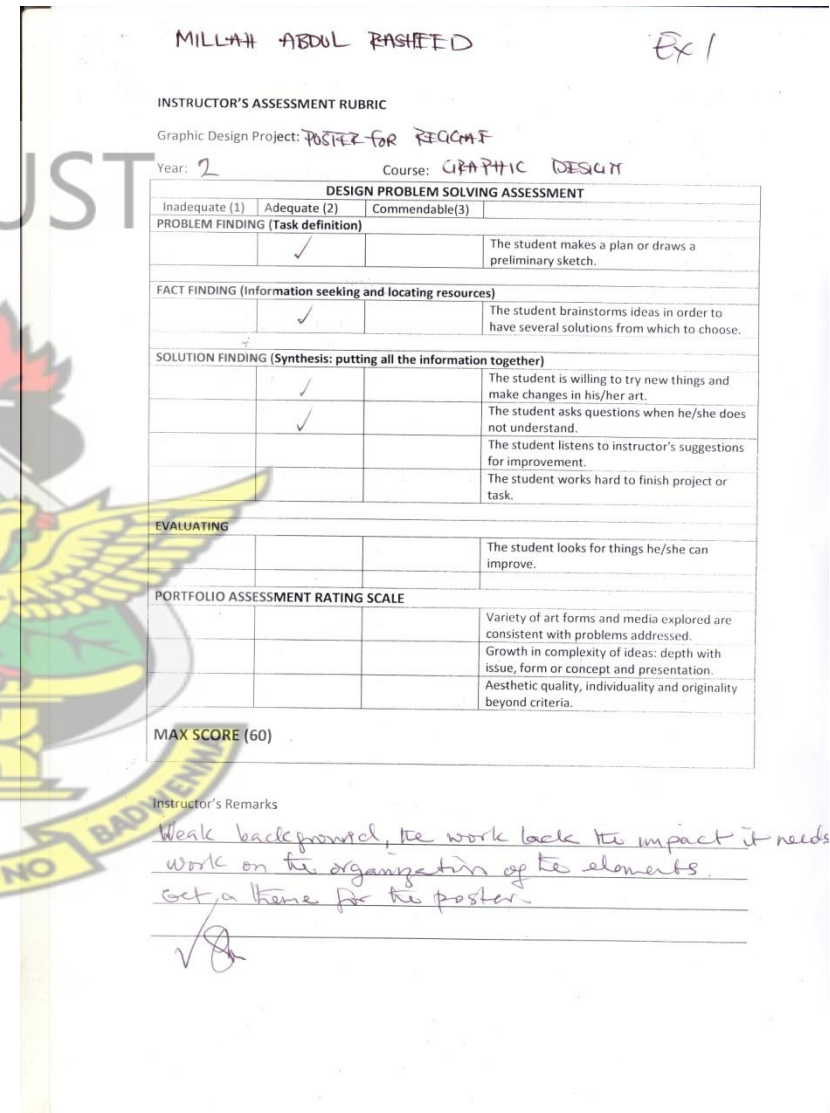 MILLAH ABDUL RASHEED
Ex 1
INSTRUCTOR'S ASSESSMENT RUBRIC
Graphic Design Project: POSTER FOR REGGAE
Year: 2 Course: GRAPHIC DESIGN
UST
DESIGN PROBLEM SOLVING ASSESSMENT
Inadequate (1) Adequate (2) Commendable(3)
PROBLEM FINDING (Task definition)
✓ The student makes a plan or draws a
preliminary sketch.
FACT FINDING (Information seeking and locating resources)
✓ The student brainstorms ideas in order to
have several solutions from which to choose.
SOLUTION FINDING (Synthesis: putting all the information together)
✓ The student is willing to try new things and
make changes in his/her art.
✓ The student asks questions when he/she does
not understand.
The student listens to instructor's suggestions
for improvement.
The student works hard to finish project or
task.
EVALUATING
The student looks for things he/she can
improve.
PORTFOLIO ASSESSMENT RATING SCALE
Variety of art forms and media explored are
consistent with problems addressed.
Growth in complexity of ideas: depth with
issue, form or concept and presentation.
Aesthetic quality, individuality and originality
beyond criteria.
MAX SCORE (60)
Instructor's Remarks
Weak background, the work lack the impact it needs
work on the organization of the elements.
Get a theme for the poster.
NO BADWENMA